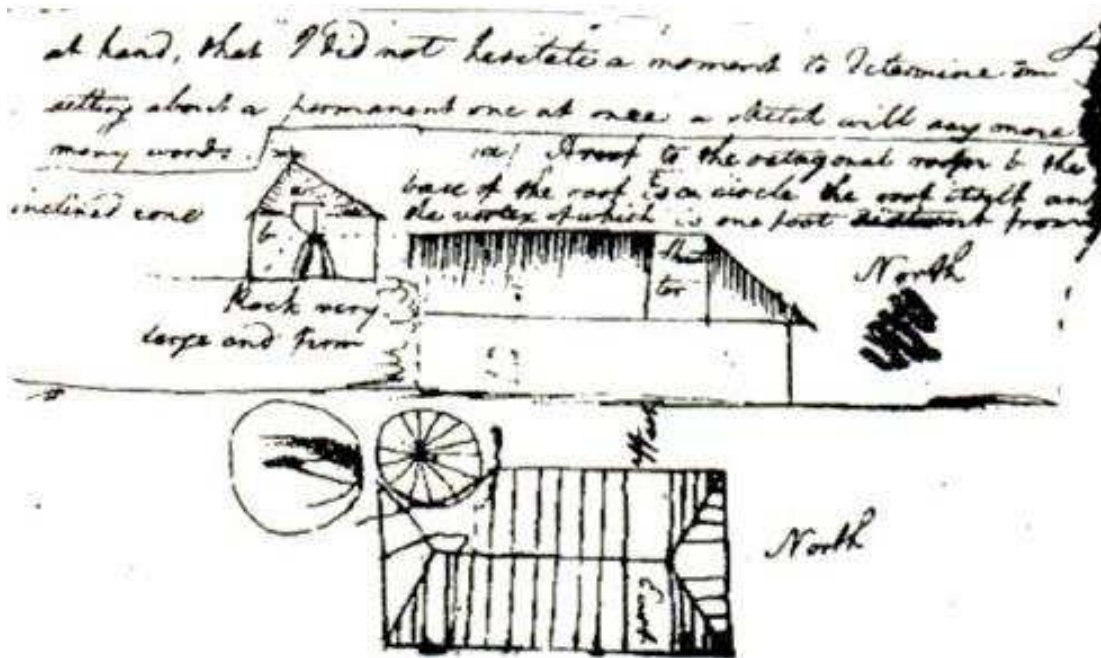 at hand, that I did not hesitate a moment to Determine on
setting about a permanent one at once a sketch will say more
many words.
(a) A roof to the octagonal room b the
base of the roof is a circle the roof itself an
inclined cone the vertex of which is one foot distant from
a
b
Rock very
large and firm
Shut
ter
North
West
North
East